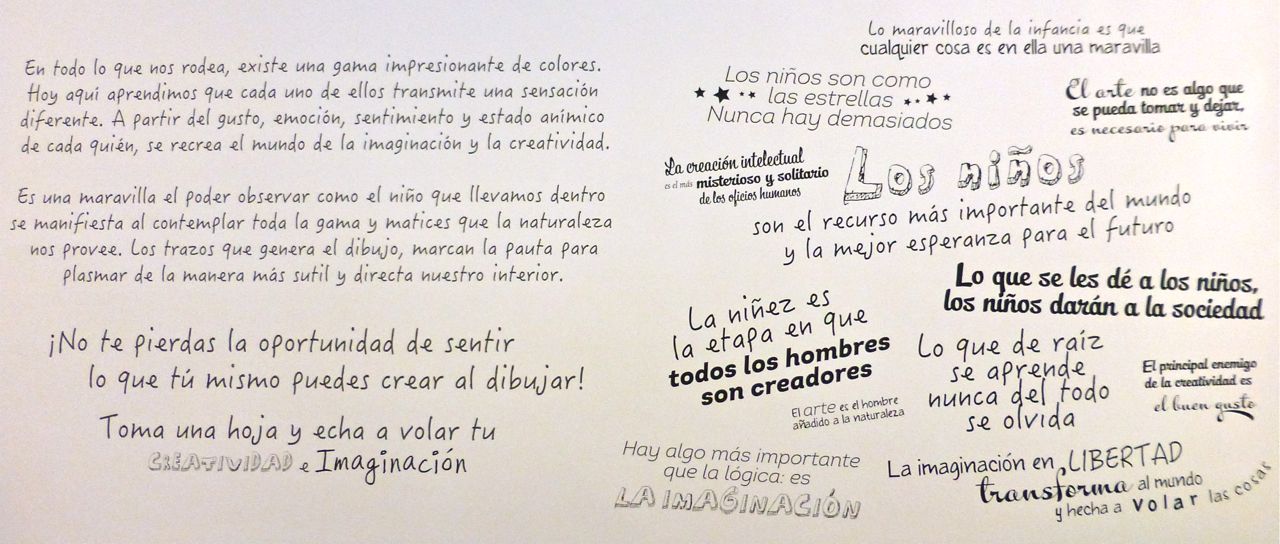 En todo lo que nos rodea, existe una gama impresionante de colores.
Hoy aqui aprendimos que cada uno de ellos transmite una sensación
diferente. A partir del gusto, emoción, sentimiento y estado anímico
de cada quién, se recrea el mundo de la imaginación y la creatividad.
Es una maravilla el poder observar como el niño que llevamos dentro
se manifiesta al contemplar toda la gama y matices que la naturaleza
nos provee. Los trazos que genera el dibujo, marcan la pauta para
plasmar de la manera más sutil y directa nuestro interior.
¡No te pierdas la oportunidad de sentir
lo que tú mismo puedes crear al dibujar!
Toma una hoja y echa a volar tu
CREATIVIDAD e Imaginación
Lo maravilloso de la infancia es que
cualquier cosa es en ella una maravilla
Los niños son como
las estrellas
Nunca hay demasiados
El arte no es algo que
se pueda tomar y dejar,
es necesario para vivir
La creación intelectual
es el más misterioso y solitario
de los oficios humanos
Los niños
son el recurso más importante del mundo
y la mejor esperanza para el futuro
Lo que se les dé a los niños,
los niños darán a la sociedad
La niñez es
la etapa en que
todos los hombres
son creadores
El arte es el hombre
añadido a la naturaleza
Lo que de raíz
se aprende
nunca del todo
se olvida
El principal enemigo
de la creatividad es
el buen gusto
Hay algo más importante
que la lógica: es
LA IMAGINACIÓN
La imaginación en LIBERTAD
transforma al mundo
y hecha a volar las cosas